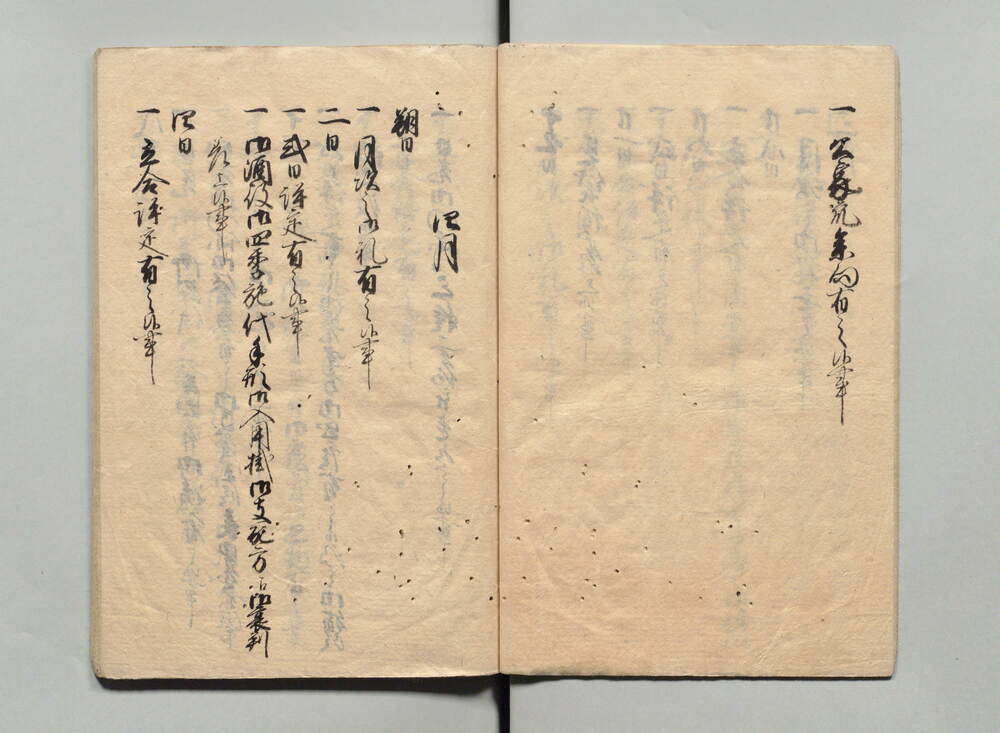 一 公家流鏑的有之候事
四月
朔日
一 月次之御礼有之候事
二日
一 式日評定有之候事
一 御酒役御四季施代手形御入用掛御支配方御裏判
出候事
四日
一 立合評定有之候事